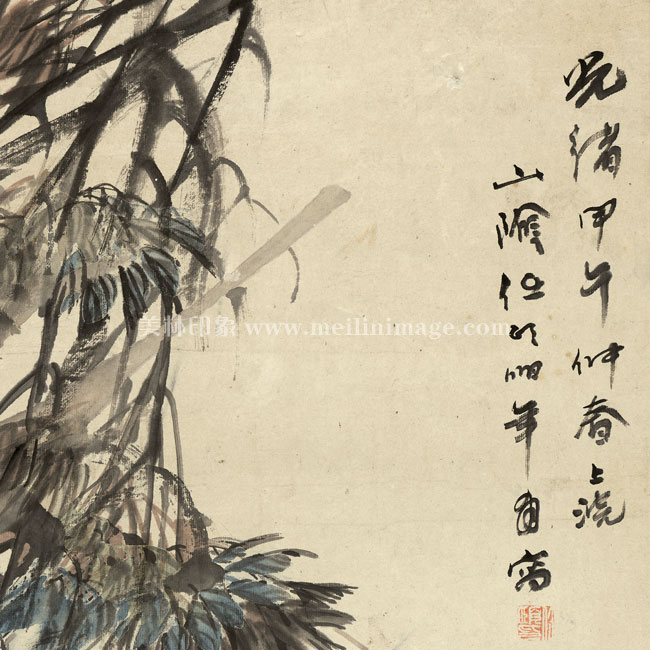 光緒甲午仲春上浣
山陰任頤伯年甫寫
美林印象 www.meilinimage.com